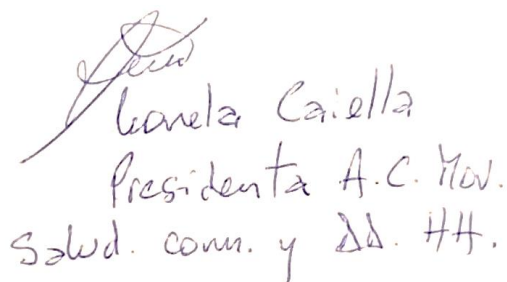 Leonela Caiella
Presidenta A.C. Mov.
Salud. com. y DD. HH.